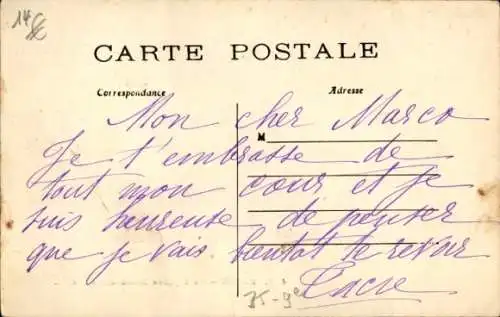 14 €
CARTE POSTALE
Correspondance
Adresse
M
Mon cher Marco
Je t'embrasse de
tout mon cœur et je
suis heureuse de penser
que je vais bientot te revoir
75-9e